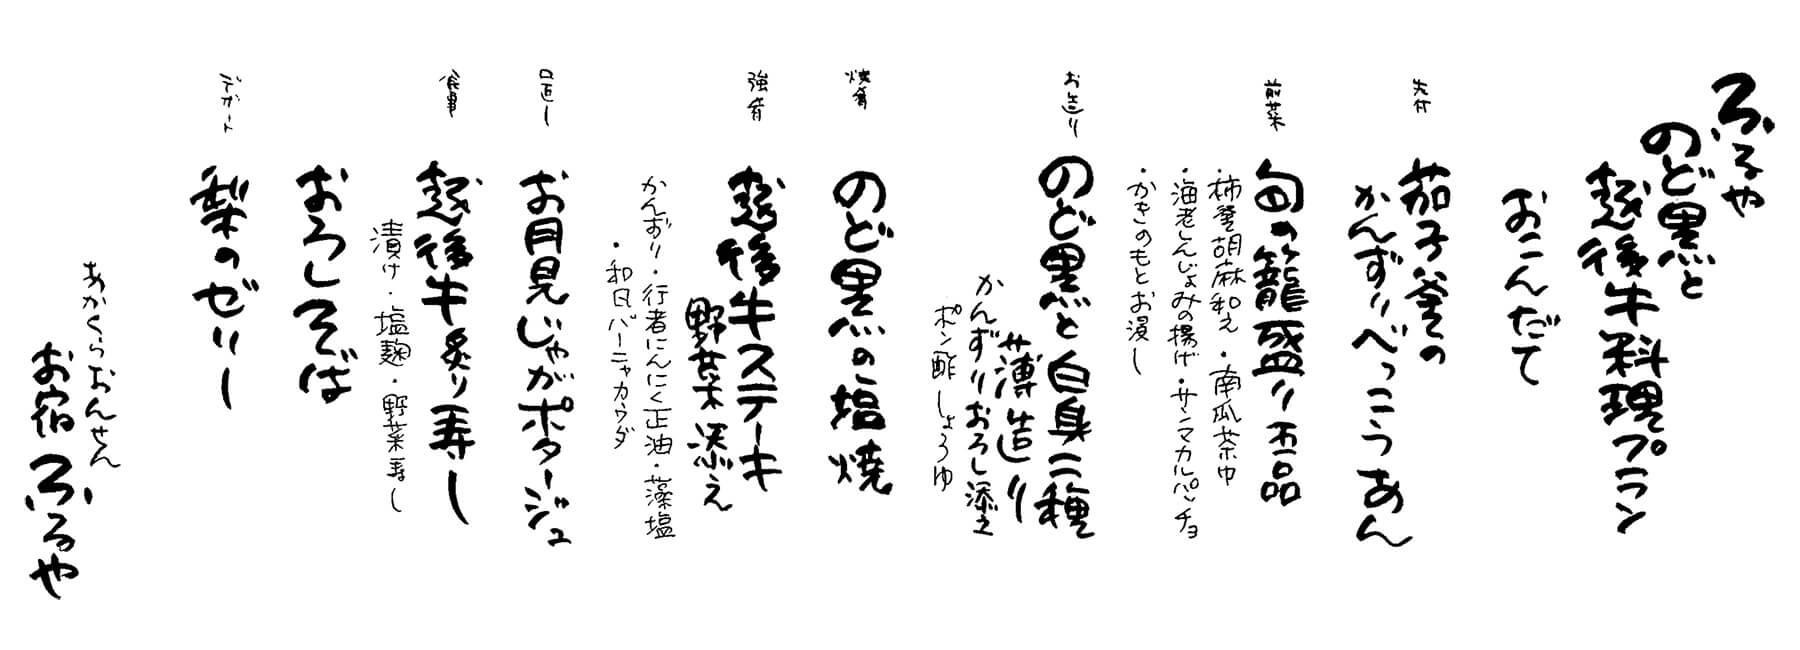 ふるや
のど黒と
越後牛料理プラン
おこんだて
先付
茄子釜の
かんずりべっこうあん
前菜
旬の籠盛り五品
・柿釜胡麻和え・南瓜茶巾
・海老しんじょみの揚げ・サンマカルパッチョ
・かきのもとお浸し
お造り
のど黒と白身二種
薄造り
かんずりおろし添え
ポン酢しょうゆ
焼肴
のど黒の塩焼
強肴
越後牛ステーキ
野菜添え
かんずり・行者にんにく正油・藻塩
・和風バーニャカウダ
口直し
お月見じゃがポタージュ
食事
越後牛炙り寿し
漬け・塩麹・野菜寿し
おろしそば
デザート
梨のゼリー
あかくらおんせん
お宿ふるや